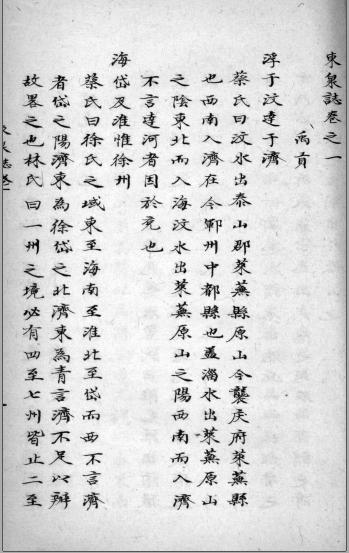 東泉誌卷之一
禹貢
浮于汶達于濟
蔡氏曰汶水出泰山郡萊蕪縣原山今襲慶府萊蕪縣
也西南入濟在今鄆州中都縣也蓋淄水出萊蕪原山
之陰東北而入海汶水出萊蕪原山之陽西南而入濟
不言達河者因於兗也
海岱及淮惟徐州
蔡氏曰徐氏之域東至海南至淮北至岱而西不言濟
者岱之陽濟東為徐岱之北濟東為青言濟不足以辨
故畧之也林氏曰一州之境必有四至七州皆止二至
東泉誌卷一